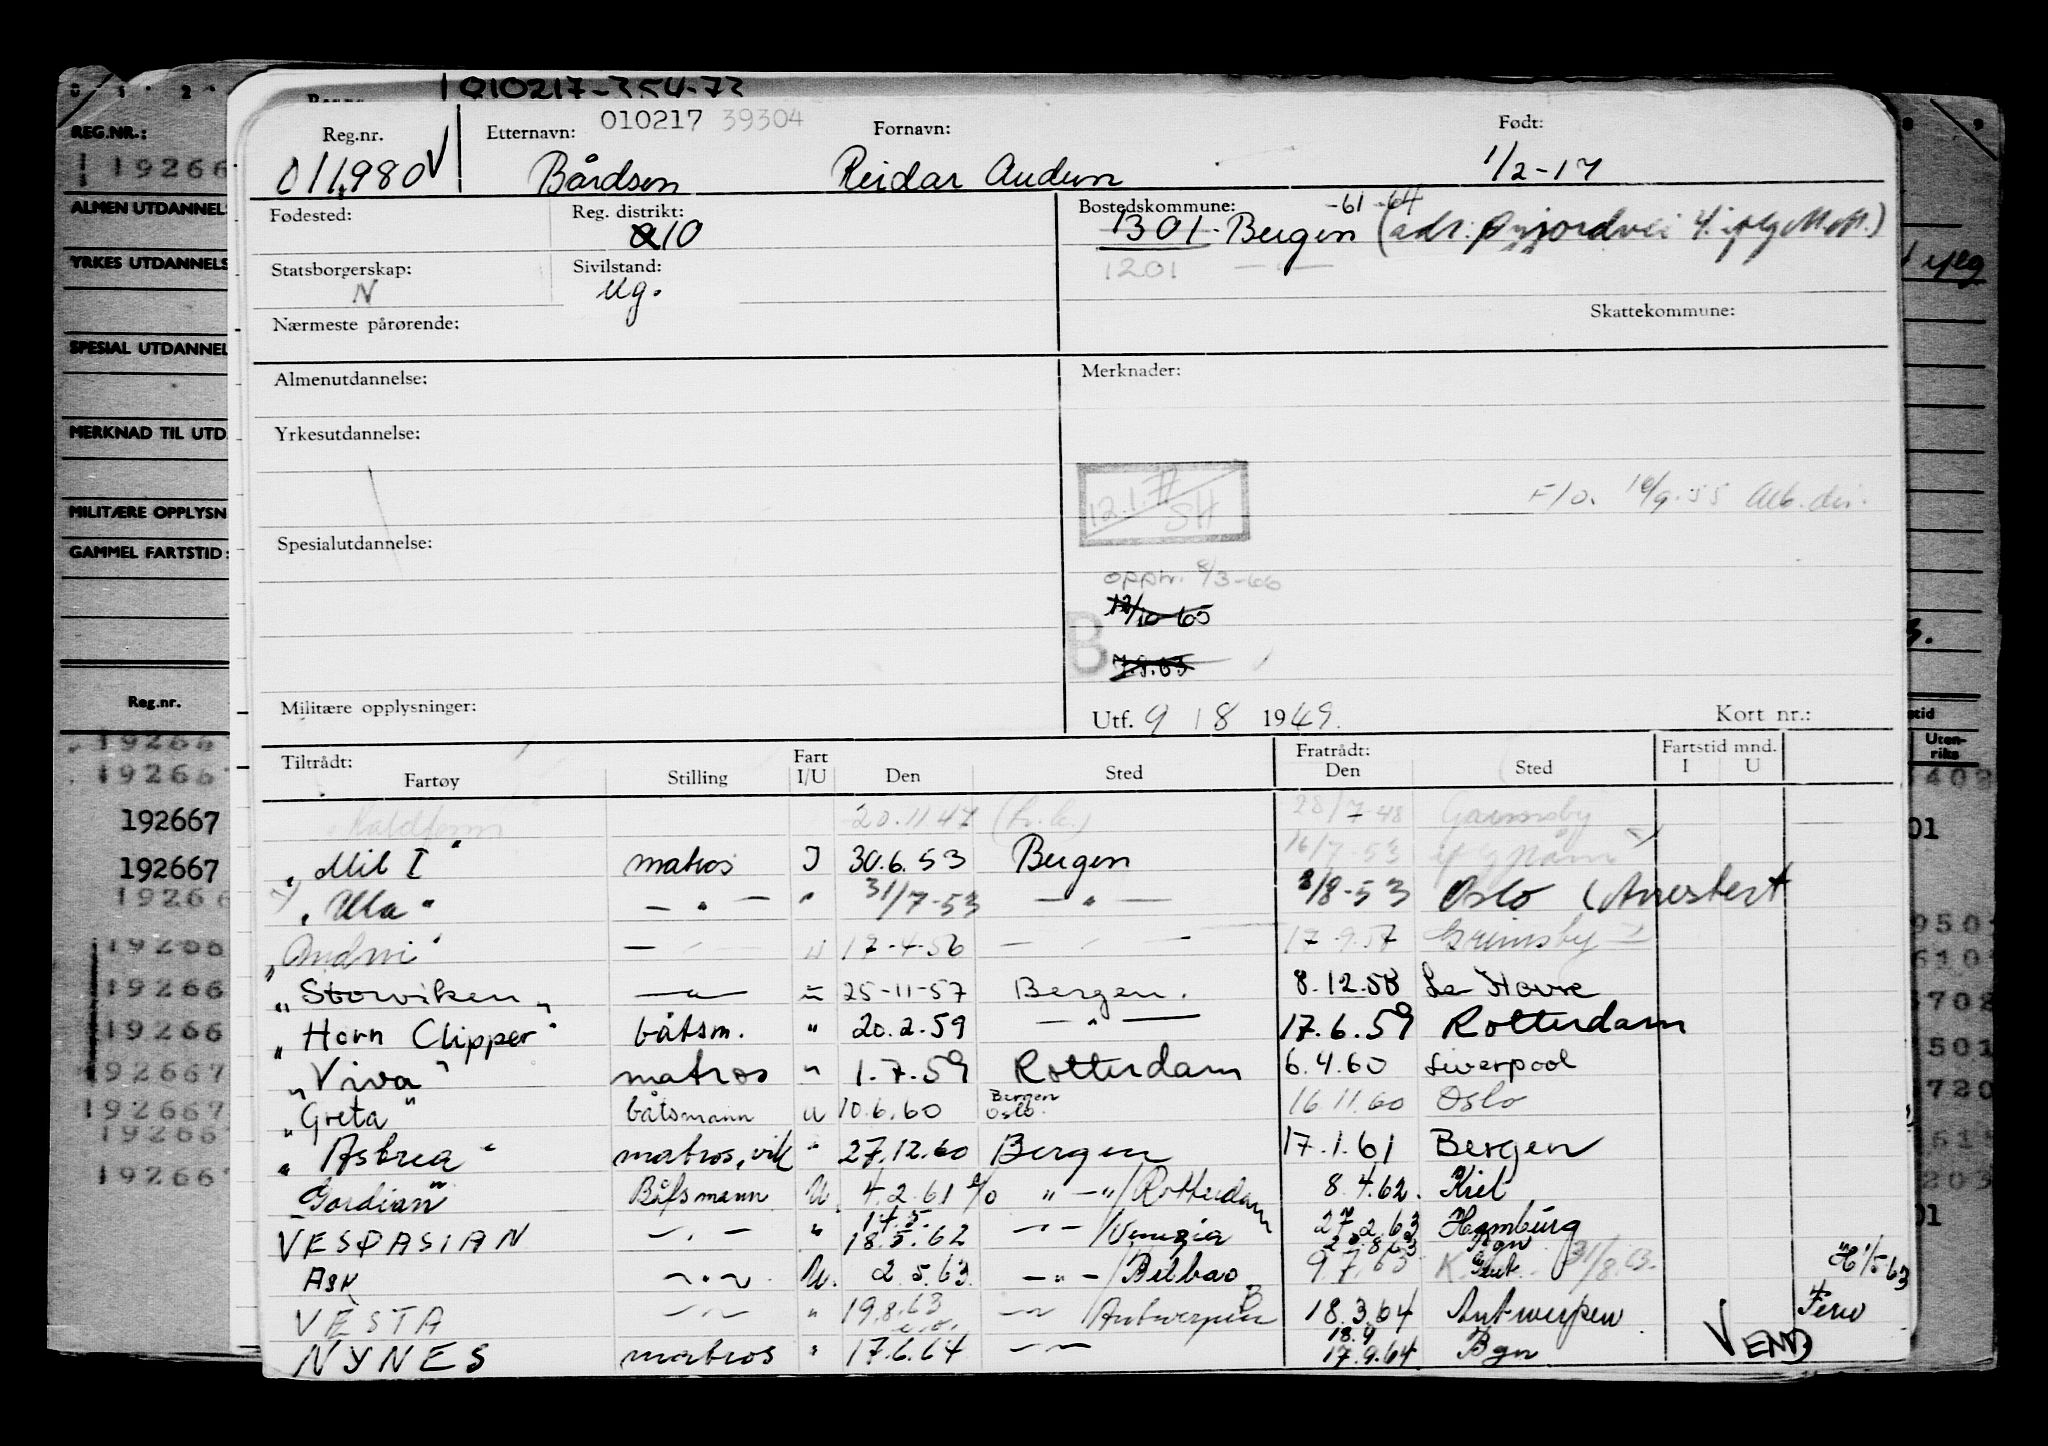 010217-354-73
Reg.nr. Etternavn: 010217 39304 Fornavn: Født:
011,980 V Bårdsen Reidar Audun 1/2-17
Fødested: Reg. distrikt: 10 Bostedskommune: -61 -64
1301 Bergen (adr.
1201
Statsborgerskap: N Sivilstand: ug.
Nærmeste pårørende: Skattekommune:
Almenutdannelse: Merknader:
Yrkesutdannelse:
12.1.77 SH
F/O. 16/9-55 Arb.dir.
Spesialutdannelse:
opptr. 8/3-66
12/10 65
B
7.8.63
Militære opplysninger: Utf. 9 / 8 1949. Kort nr.:
Tiltrådt: Fartøy Stilling Fart I/U Den Sted Fratrådt: Den Sted Fartstid mnd. I U
20.11.47 28/7-48 Grimsby
"Mil I" matros I 30.6.53 Bergen 16/7-53
"Ula" — " — " 31/7-53 — " — 3/8-53 Oslo (Arrestert
"Andvi" — " — " 17-4-56 — " — 17.9.57 Grimsby
"Storviken" — " — " 25-11-57 Bergen. 8.12.58 Le Havre
"Horn Clipper" båtsm. " 20.2.59 — " — 17.6.59 Rotterdam
"Viva" matros " 1.7.59 Rotterdam 6.4.60 Liverpool
"Greta" båtsmann u 10.6.60 Bergen Oslo. 16.11.60 Oslo
"Astrea" matros, vik " 27.12.60 Bergen 17.1.61 Bergen
"Gordian" Båtsmann U. 4.2.61 " — " / Rotterdam 8.4.62. Kiel
VESPASIAN — " — " 14.5. 18.5.62 — " — / Venezia 27.2.63 Hamburg
ASK — " — U. 2.5.63 — " — / Bilbao 20.8.63 Bgn 9.7.63 31/8.63. 1/5 63
VESTA — " — " 19.8.63 — " — / Antwerpen 18.3.64 Antwerpen Ferie
NYNES matros " 17.6.64 — " — 18.9 17.9.64 Bgn V END
REG.NR.:
19266
ALMEN UTDANNEL
YRKES UTDANNELS
SPESIAL UTDANNEL
MERKNAD TIL UTD
MILITÆRE OPPLYSN
GAMMEL FARTSTID:
Reg.nr.
19266
192667
192667
192667
19266
19266
19266
19266
192667
192667
19266
19266
Uten-
riks